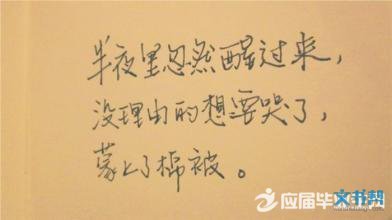 半夜里忽然醒过来，
没理由的想要哭了，
蒙上了棉被。
应届毕
文书帮